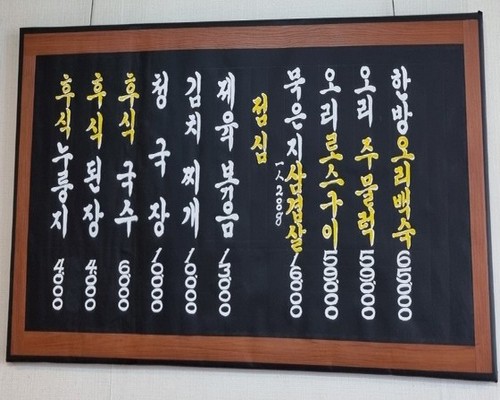 한방오리백숙 65000
오리 주물럭 59000
오리로스구이 59000
묵은지삼겹살 16000
一人 200g
점심
제육볶음 13000
김치찌개 10000
청국장 10000
후식 국수 6000
후식 된장 4000
후식 누룽지 4000